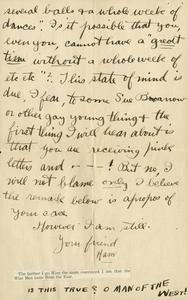 several balls & a whole week of
dances". Is it possible that you,
even you, cannot have a "great
time without a whole week of
etc etc"? This state of mind is
due, I fear, to some Sue
or other gay young thing & the
first thing I will hear about is
that you are receiving pink
letters and — — — ! But no I
will not blame only I believe
the remark below is apropos of
your case.
However I am still.
Your friend
Ham
The farther I go West the more convinced I am that the
Wise Men came from the East.
IS THIS TRUE? O MAN OF THE WEST!